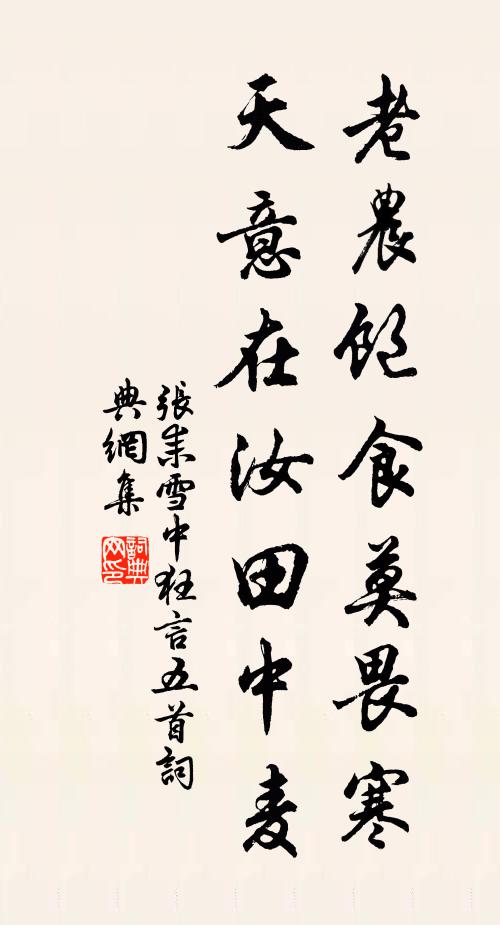 老農飽食莫畏寒
天意在汝田中麦
張耒雪中狂言五首詞
典網集
詞典網印